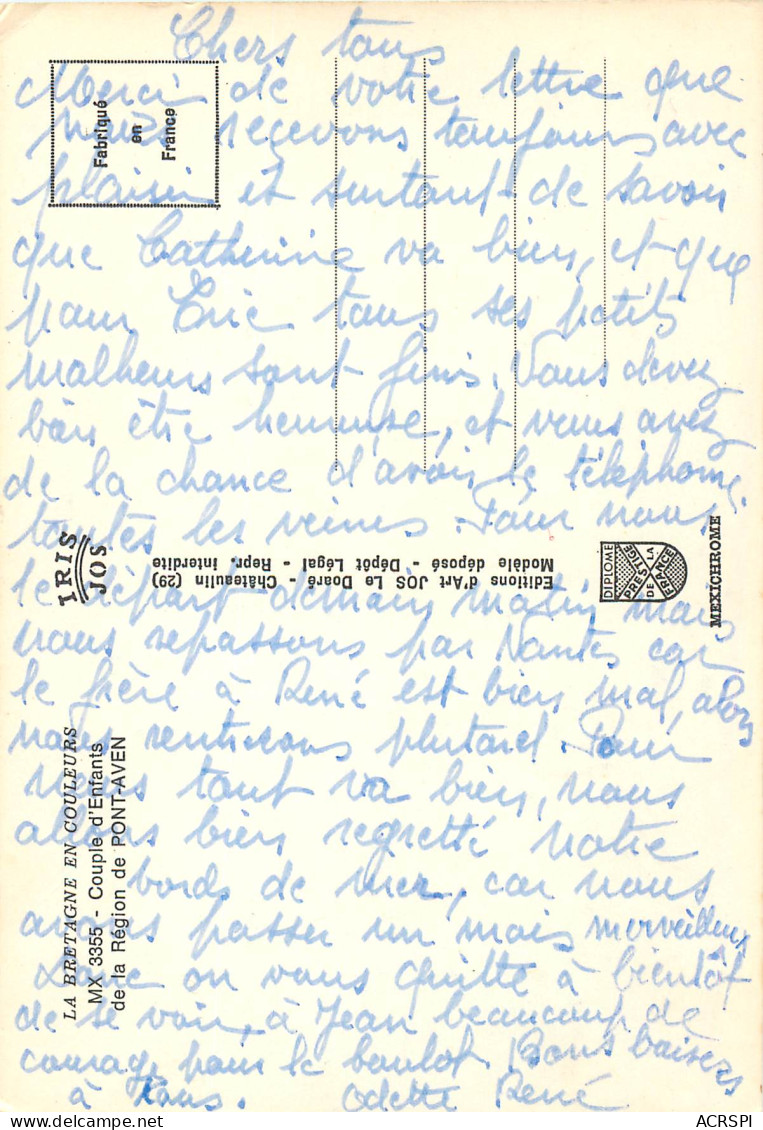 Chers tous
Merci de votre lettre que
nous recevons toujours avec
plaisir et surtout de savoir
que Catherine va bien, et que
pour Eric tous ses petits
malheurs sont finis. Vous devez
bien être heureuse, et vous avez
de la chance d'avoir le téléphone
toutes les veines. Pour nous
le départ demain matin mais
nous repassons par Nantes car
le frère à René est bien mal, alors
nous rentrerons plutard. Pour
nous tout va bien, nous
allons bien regretté notre
bords de mer, car nous
avons passer un mois merveilleux
Donc on vous quitte à bientôt
de se voir, à Jean beaucoup de
courage pour le boulot. Bons baisers
à tous. Odette René
Fabriqué
en
France
IRIS
JOS
Editions d'Art JOS Le Doaré - Châteaulin (29)
Modèle déposé - Dépôt Légal - Repr. interdite
DIPLOME
PRESTIGE
DE LA
FRANCE
MEXICHROME
LA BRETAGNE EN COULEURS
MX 3355 - Couple d'Enfants
de la Région de PONT-AVEN
ACRSPI